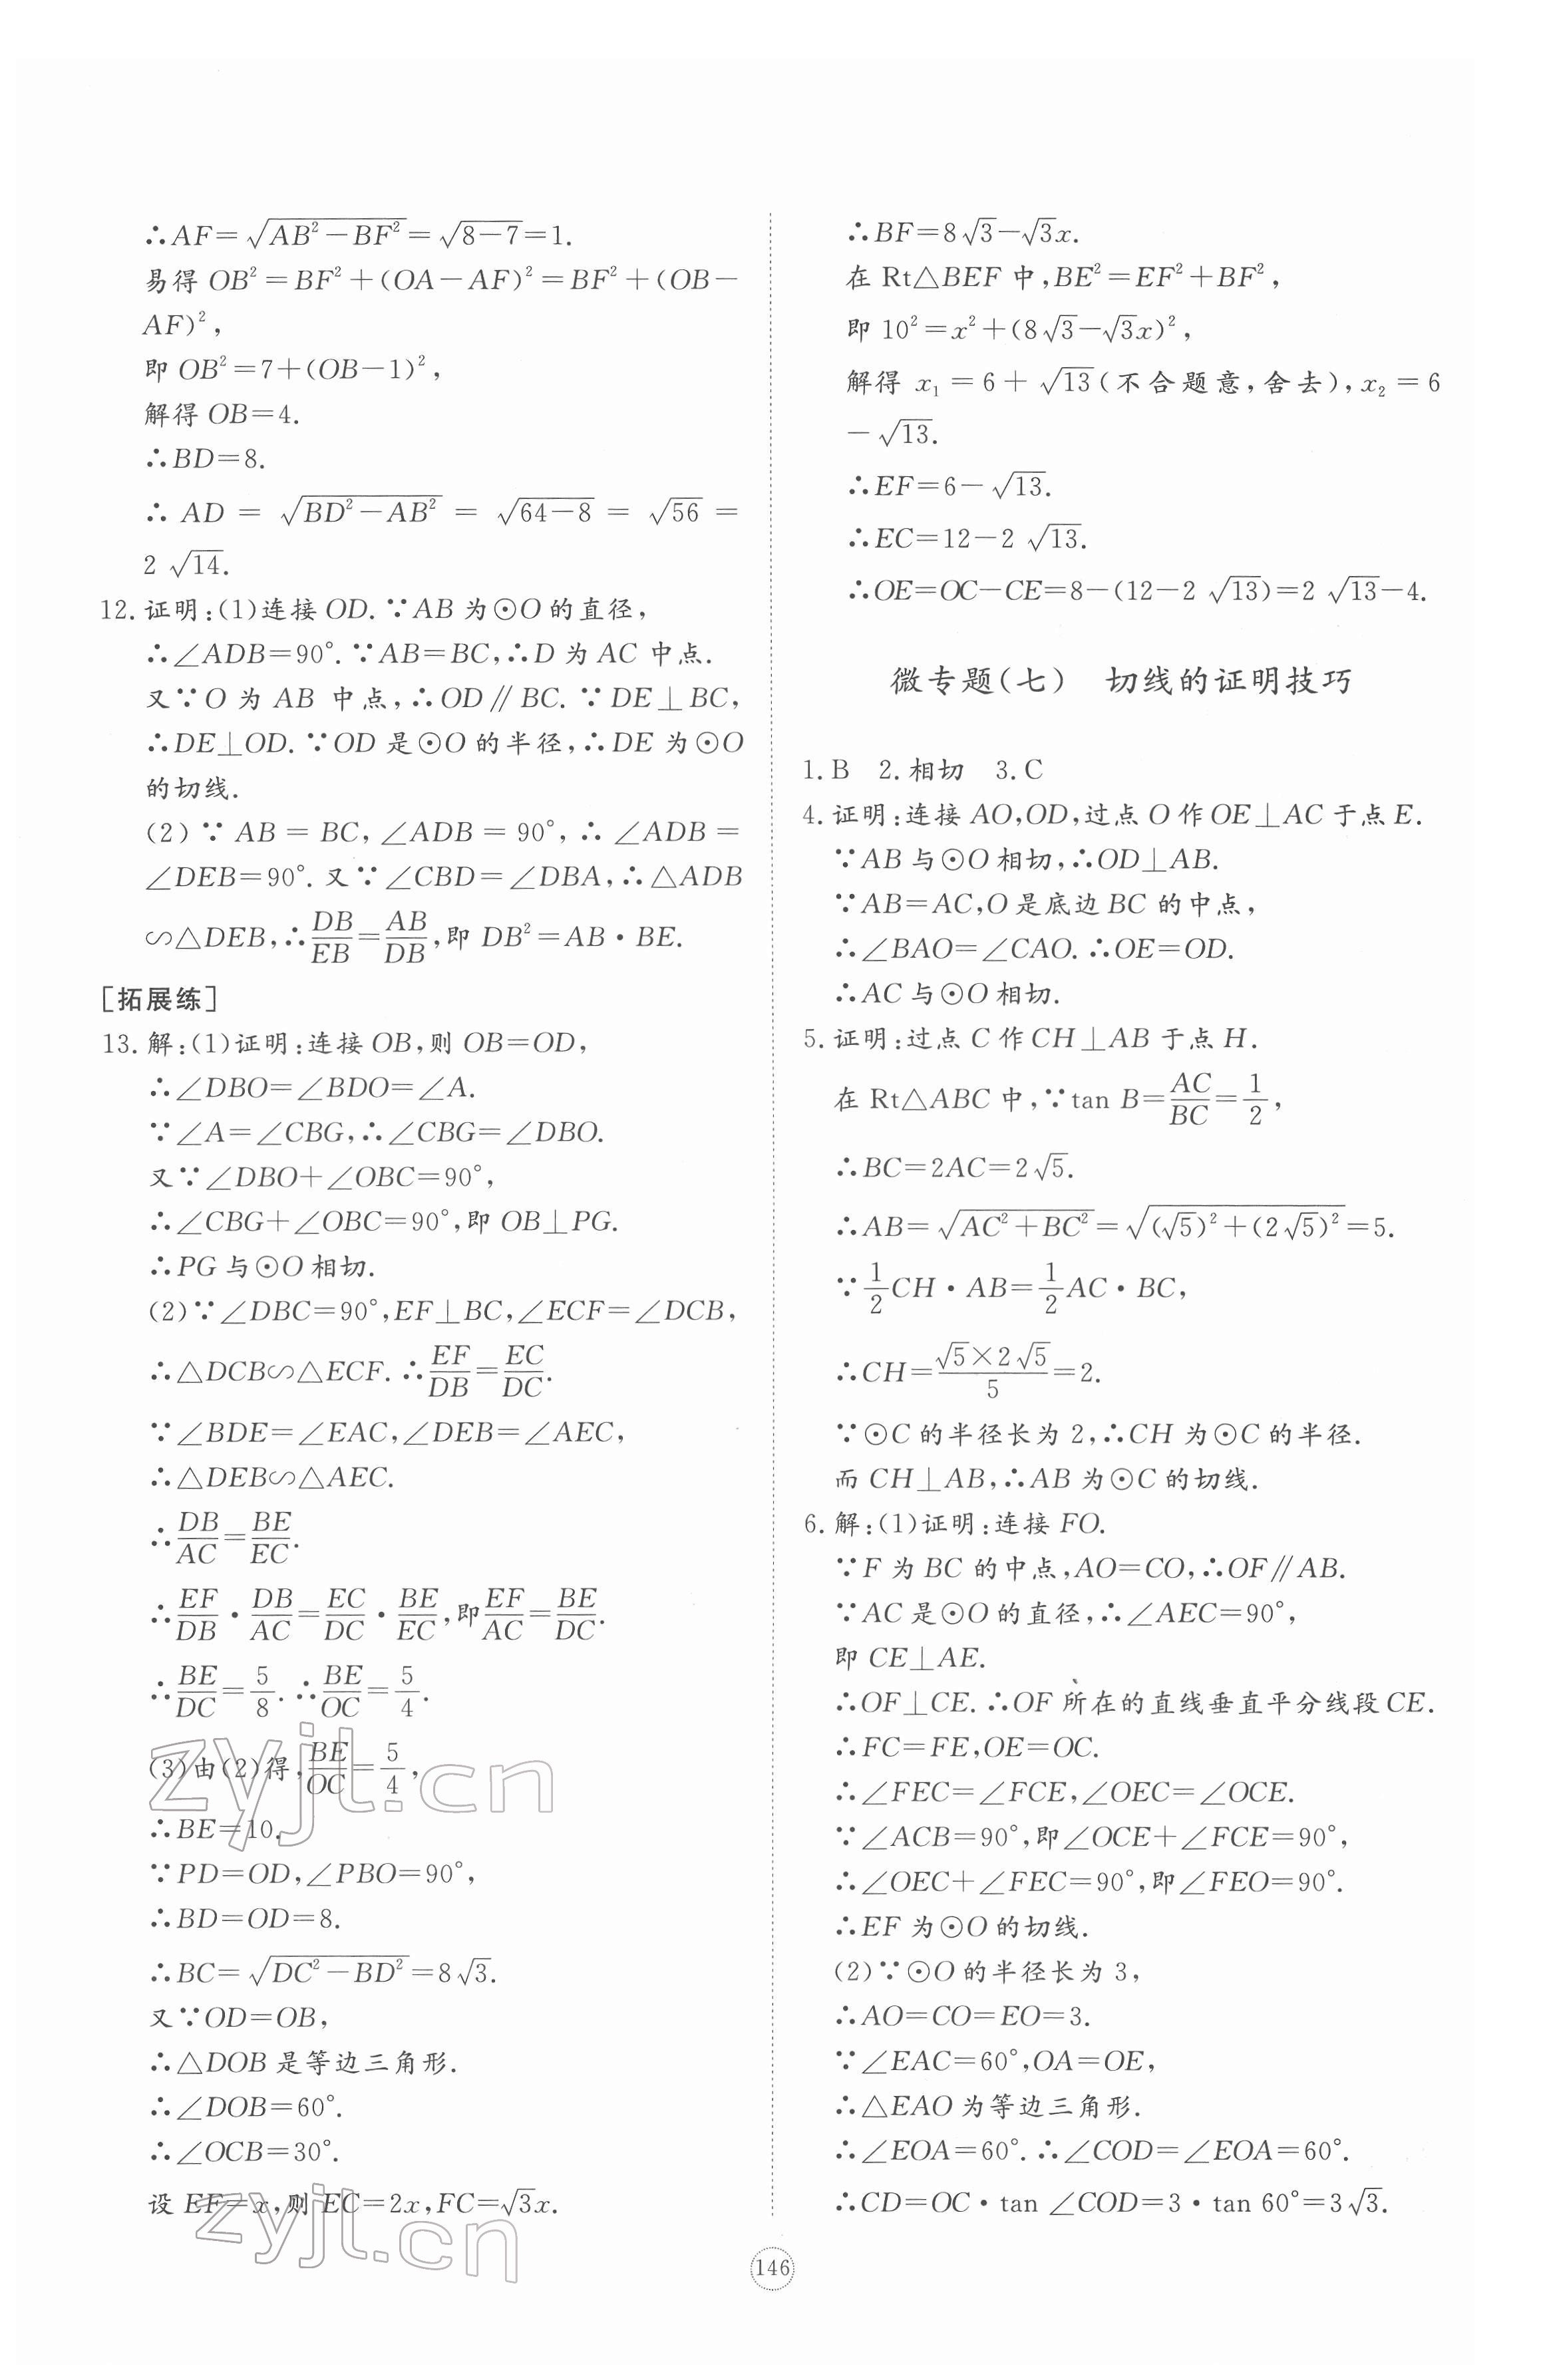 ∴AF=√(AB²-BF²)=√(8-7)=1.
易得 OB²=BF²+(OA-AF)²=BF²+(OB-
AF)²,
即 OB²=7+(OB-1)²,
解得 OB=4.
∴BD=8.
∴ AD = √(BD²-AB²) = √(64-8) = √56 =
2√14.
12. 证明:(1)连接 OD. ∵AB 为⊙O 的直径,
∴∠ADB=90°. ∵AB=BC,∴D 为 AC 中点.
又∵O 为 AB 中点,∴OD∥BC. ∵DE⊥BC,
∴DE⊥OD. ∵OD 是⊙O 的半径,∴DE 为⊙O
的切线.
(2) ∵ AB = BC, ∠ADB = 90°, ∴ ∠ADB =
∠DEB=90°. 又∵∠CBD=∠DBA,∴△ADB
∽△DEB,∴DB/EB=AB/DB,即 DB²=AB·BE.
[拓展练]
13. 解:(1)证明:连接 OB,则 OB=OD,
∴∠DBO=∠BDO=∠A.
∵∠A=∠CBG,∴∠CBG=∠DBO.
又∵∠DBO+∠OBC=90°,
∴∠CBG+∠OBC=90°,即 OB⊥PG.
∴PG 与⊙O 相切.
(2)∵∠DBC=90°,EF⊥BC,∠ECF=∠DCB,
∴△DCB∽△ECF. ∴EF/DB=EC/DC.
∵∠BDE=∠EAC,∠DEB=∠AEC,
∴△DEB∽△AEC.
∴DB/AC=BE/EC.
∴EF/DB·DB/AC=EC/DC·BE/EC,即EF/AC=BE/DC.
∴BE/DC=5/8. ∴BE/OC=5/4.
(3)由(2)得,BE/OC=5/4,
∴BE=10.
∵PD=OD,∠PBO=90°,
∴BD=OD=8.
∴BC=√(DC²-BD²)=8√3.
又∵OD=OB,
∴△DOB 是等边三角形.
∴∠DOB=60°.
∴∠OCB=30°.
设 EF=x,则 EC=2x,FC=√3x.
∴BF=8√3-√3x.
在 Rt△BEF 中,BE²=EF²+BF²,
即 10²=x²+(8√3-√3x)²,
解得 x₁ = 6 + √13(不合题意,舍去),x₂ = 6
-√13.
∴EF=6-√13.
∴EC=12-2√13.
∴OE=OC-CE=8-(12-2√13)=2√13-4.
微专题(七) 切线的证明技巧
1. B 2. 相切 3. C
4. 证明:连接 AO,OD,过点 O 作 OE⊥AC 于点 E.
∵AB 与⊙O 相切,∴OD⊥AB.
∵AB=AC,O 是底边 BC 的中点,
∴∠BAO=∠CAO. ∴OE=OD.
∴AC 与⊙O 相切.
5. 证明:过点 C 作 CH⊥AB 于点 H.
在 Rt△ABC 中,∵tan B=AC/BC=1/2,
∴BC=2AC=2√5.
∴AB=√(AC²+BC²)=√((√5)²+(2√5)²)=5.
∵1/2CH·AB=1/2AC·BC,
∴CH=(√5×2√5)/5=2.
∵⊙C 的半径长为 2,∴CH 为⊙C 的半径.
而 CH⊥AB,∴AB 为⊙C 的切线.
6. 解:(1)证明:连接 FO.
∵F 为 BC 的中点,AO=CO,∴OF∥AB.
∵AC 是⊙O 的直径,∴∠AEC=90°,
即 CE⊥AE.
∴OF⊥CE. ∴OF 所在的直线垂直平分线段 CE.
∴FC=FE,OE=OC.
∴∠FEC=∠FCE,∠OEC=∠OCE.
∵∠ACB=90°,即∠OCE+∠FCE=90°,
∴∠OEC+∠FEC=90°,即∠FEO=90°.
∴EF 为⊙O 的切线.
(2)∵⊙O 的半径长为 3,
∴AO=CO=EO=3.
∵∠EAC=60°,OA=OE,
∴△EAO 为等边三角形.
∴∠EOA=60°. ∴∠COD=∠EOA=60°.
∴CD=OC·tan ∠COD=3·tan 60°=3√3.
146
zyjl.cn
zyjl.cn